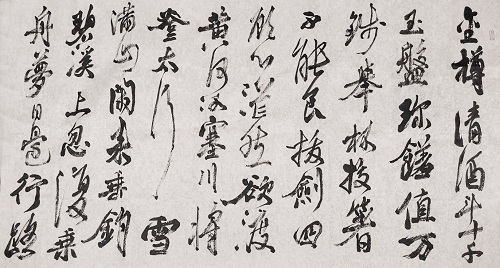 金樽清酒斗十千
玉盤珍饈值万
錢舉杯投箸
不能食拔劍四
顧心茫然欲渡
黄河冰塞川將
登太行雪
滿山閑来垂釣
碧溪上忽復乗
舟夢日邊行路